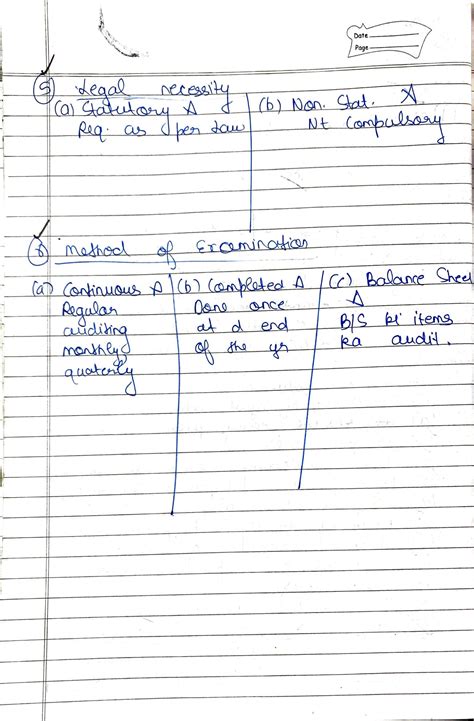 Date
Page
5 Legal necessity
(a) Statutory A
Req. as per Law
(b) Non. Stat. A
Nt Compulsory
6 method of Examination
(a) Continuous A
Regular
auditing
monthly
quaterly
(b) Completed A
Done once
at d end
of the yr
(c) Balance Sheet
A
B/S ki items
ka audit.